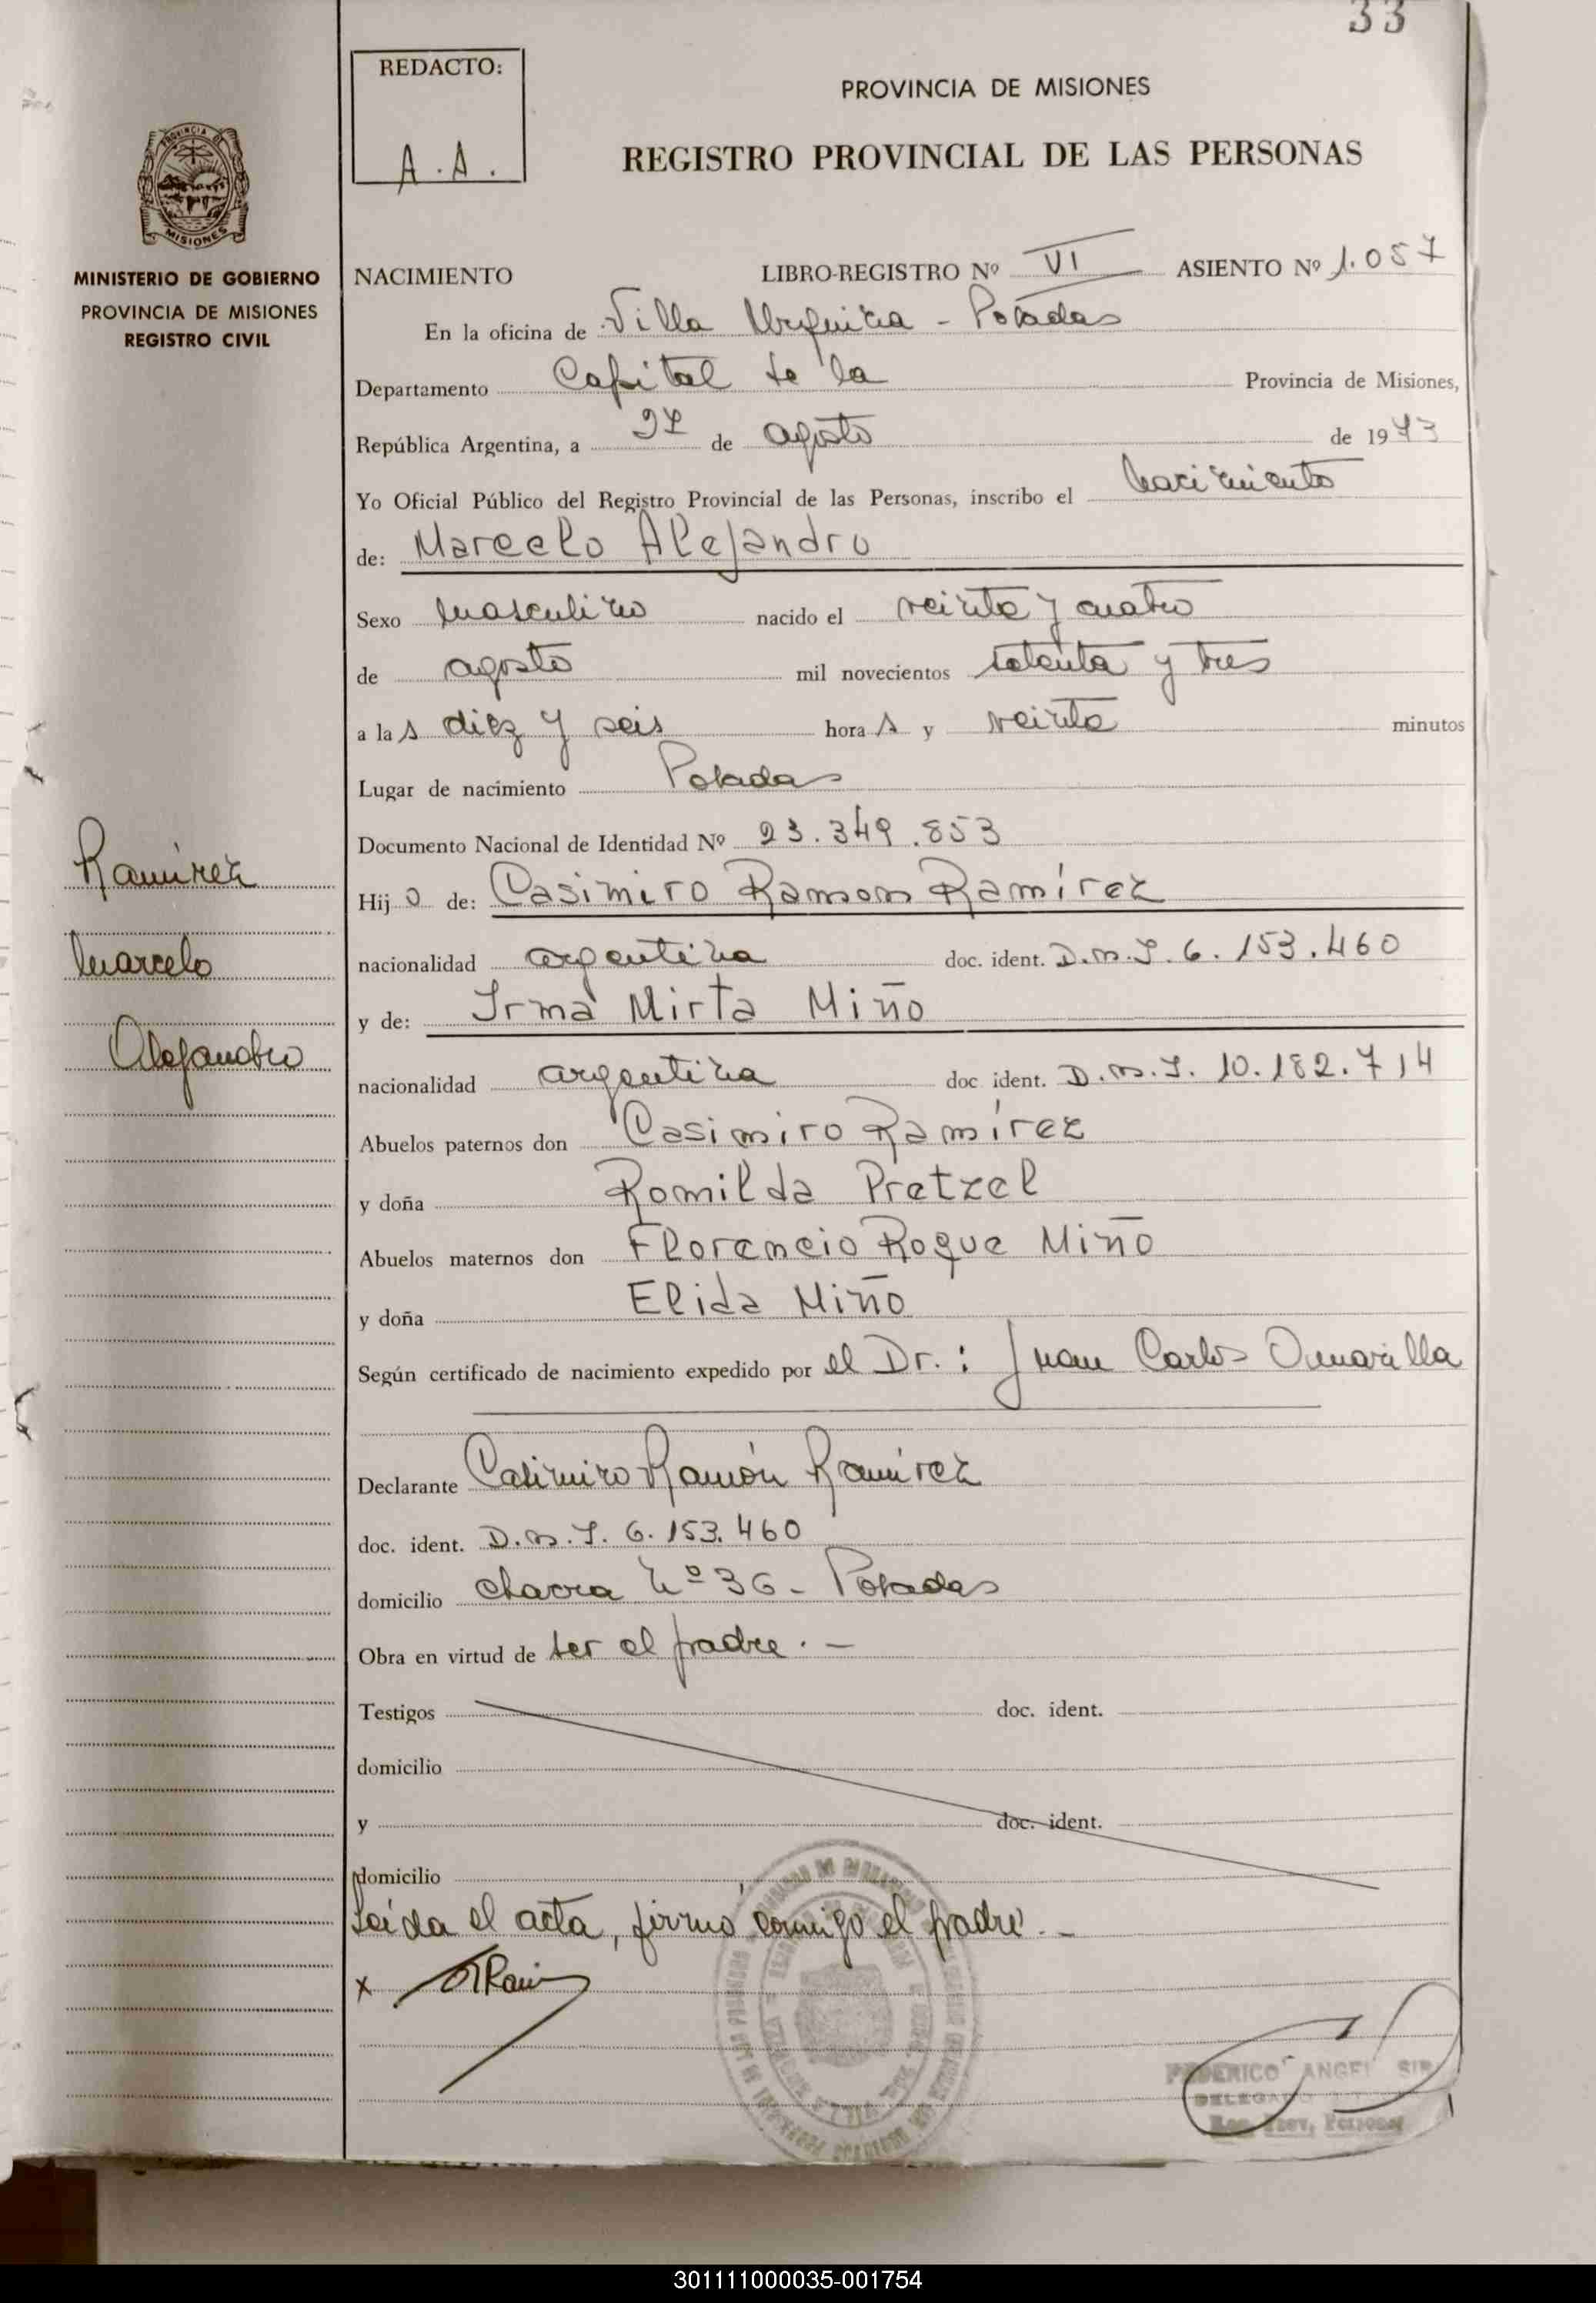 33
REDACTO:
A.A.
PROVINCIA DE MISIONES
REGISTRO PROVINCIAL DE LAS PERSONAS
PROVINCIA DE
MISIONES
MINISTERIO DE GOBIERNO
PROVINCIA DE MISIONES
REGISTRO CIVIL
NACIMIENTO LIBRO-REGISTRO Nº VI ASIENTO Nº 1.057
En la oficina de Villa Urquiza - Posadas
Departamento Capital de la Provincia de Misiones,
República Argentina, a 27 de agosto de 1973
Yo Oficial Público del Registro Provincial de las Personas, inscribo el nacimiento
de: Marcelo Alejandro
Sexo masculino nacido el veinte y cuatro
de agosto mil novecientos setenta y tres
a las diez y seis horas y veinte minutos
Lugar de nacimiento Posadas
Documento Nacional de Identidad Nº 23.349.853
Ramírez
Marcelo
Alejandro
Hijo de: Casimiro Ramon Ramírez
nacionalidad argentina doc. ident. D.N.I. 6.153.460
y de: Irma Mirta Miño
nacionalidad argentina doc ident. D.N.I. 10.182.714
Abuelos paternos don Casimiro Ramírez
y doña Romilda Pretzel
Abuelos maternos don Florencio Roque Miño
y doña Elida Miño
Según certificado de nacimiento expedido por el Dr.: Juan Carlos
Declarante Casimiro Ramón Ramírez
doc. ident. D.N.I. 6.153.460
domicilio chacra Nº 36 - Posadas
Obra en virtud de ser el padre. -
Testigos doc. ident.
domicilio
y doc. ident.
domicilio
Leída el acta, firmó conmigo el padre. -
x
FEDERICO ANGEL
DELEGADO
301111000035-001754